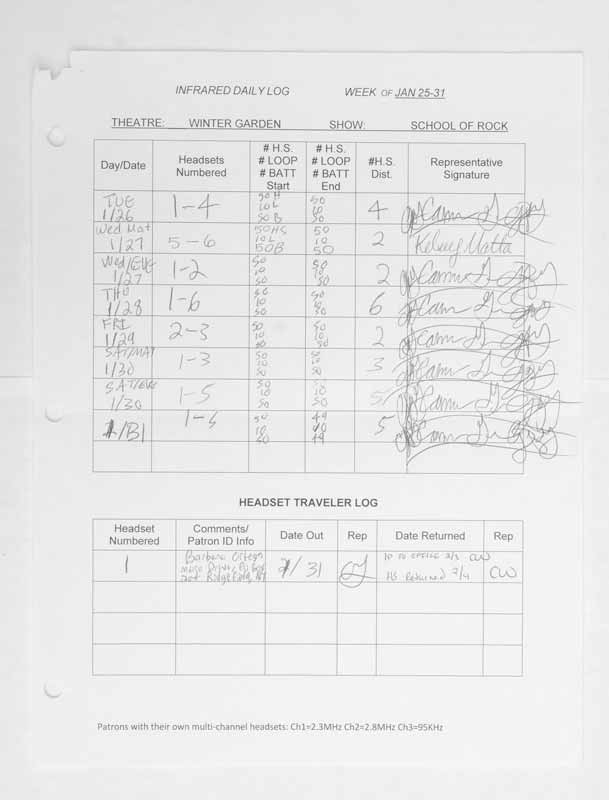 INFRARED DAILY LOG WEEK OF JAN 25-31
THEATRE: WINTER GARDEN SHOW: SCHOOL OF ROCK
Day/Date Headsets Numbered # H.S. # LOOP # BATT Start # H.S. # LOOP # BATT End #H.S. Dist. Representative Signature
TUE 1/26 1-4 50 H 10 L 50 B 50 10 50 4
Wed Mat 1/27 5-6 50HS 10L 50B 50 10 50 2 Kelsey Matta
Wed/EVE 1/27 1-2 50 10 50 50 10 50 2
THU 1/28 1-6 50 10 50 50 10 50 6
FRI 1/29 2-3 50 10 50 50 10 50 2
SAT/MAT 1/30 1-3 50 10 50 50 10 50 3
SAT/EVE 1/30 1-5 50 10 50 50 10 50 5
1/31 1-5 50 10 50 49 10 49 5
HEADSET TRAVELER LOG
Headset Numbered Comments/ Patron ID Info Date Out Rep Date Returned Rep
1 Barbara 1/31 10 TO OFFICE CW
HS Returned 2/4 CW
Patrons with their own multi-channel headsets: Ch1=2.3MHz Ch2=2.8MHz Ch3=95KHz